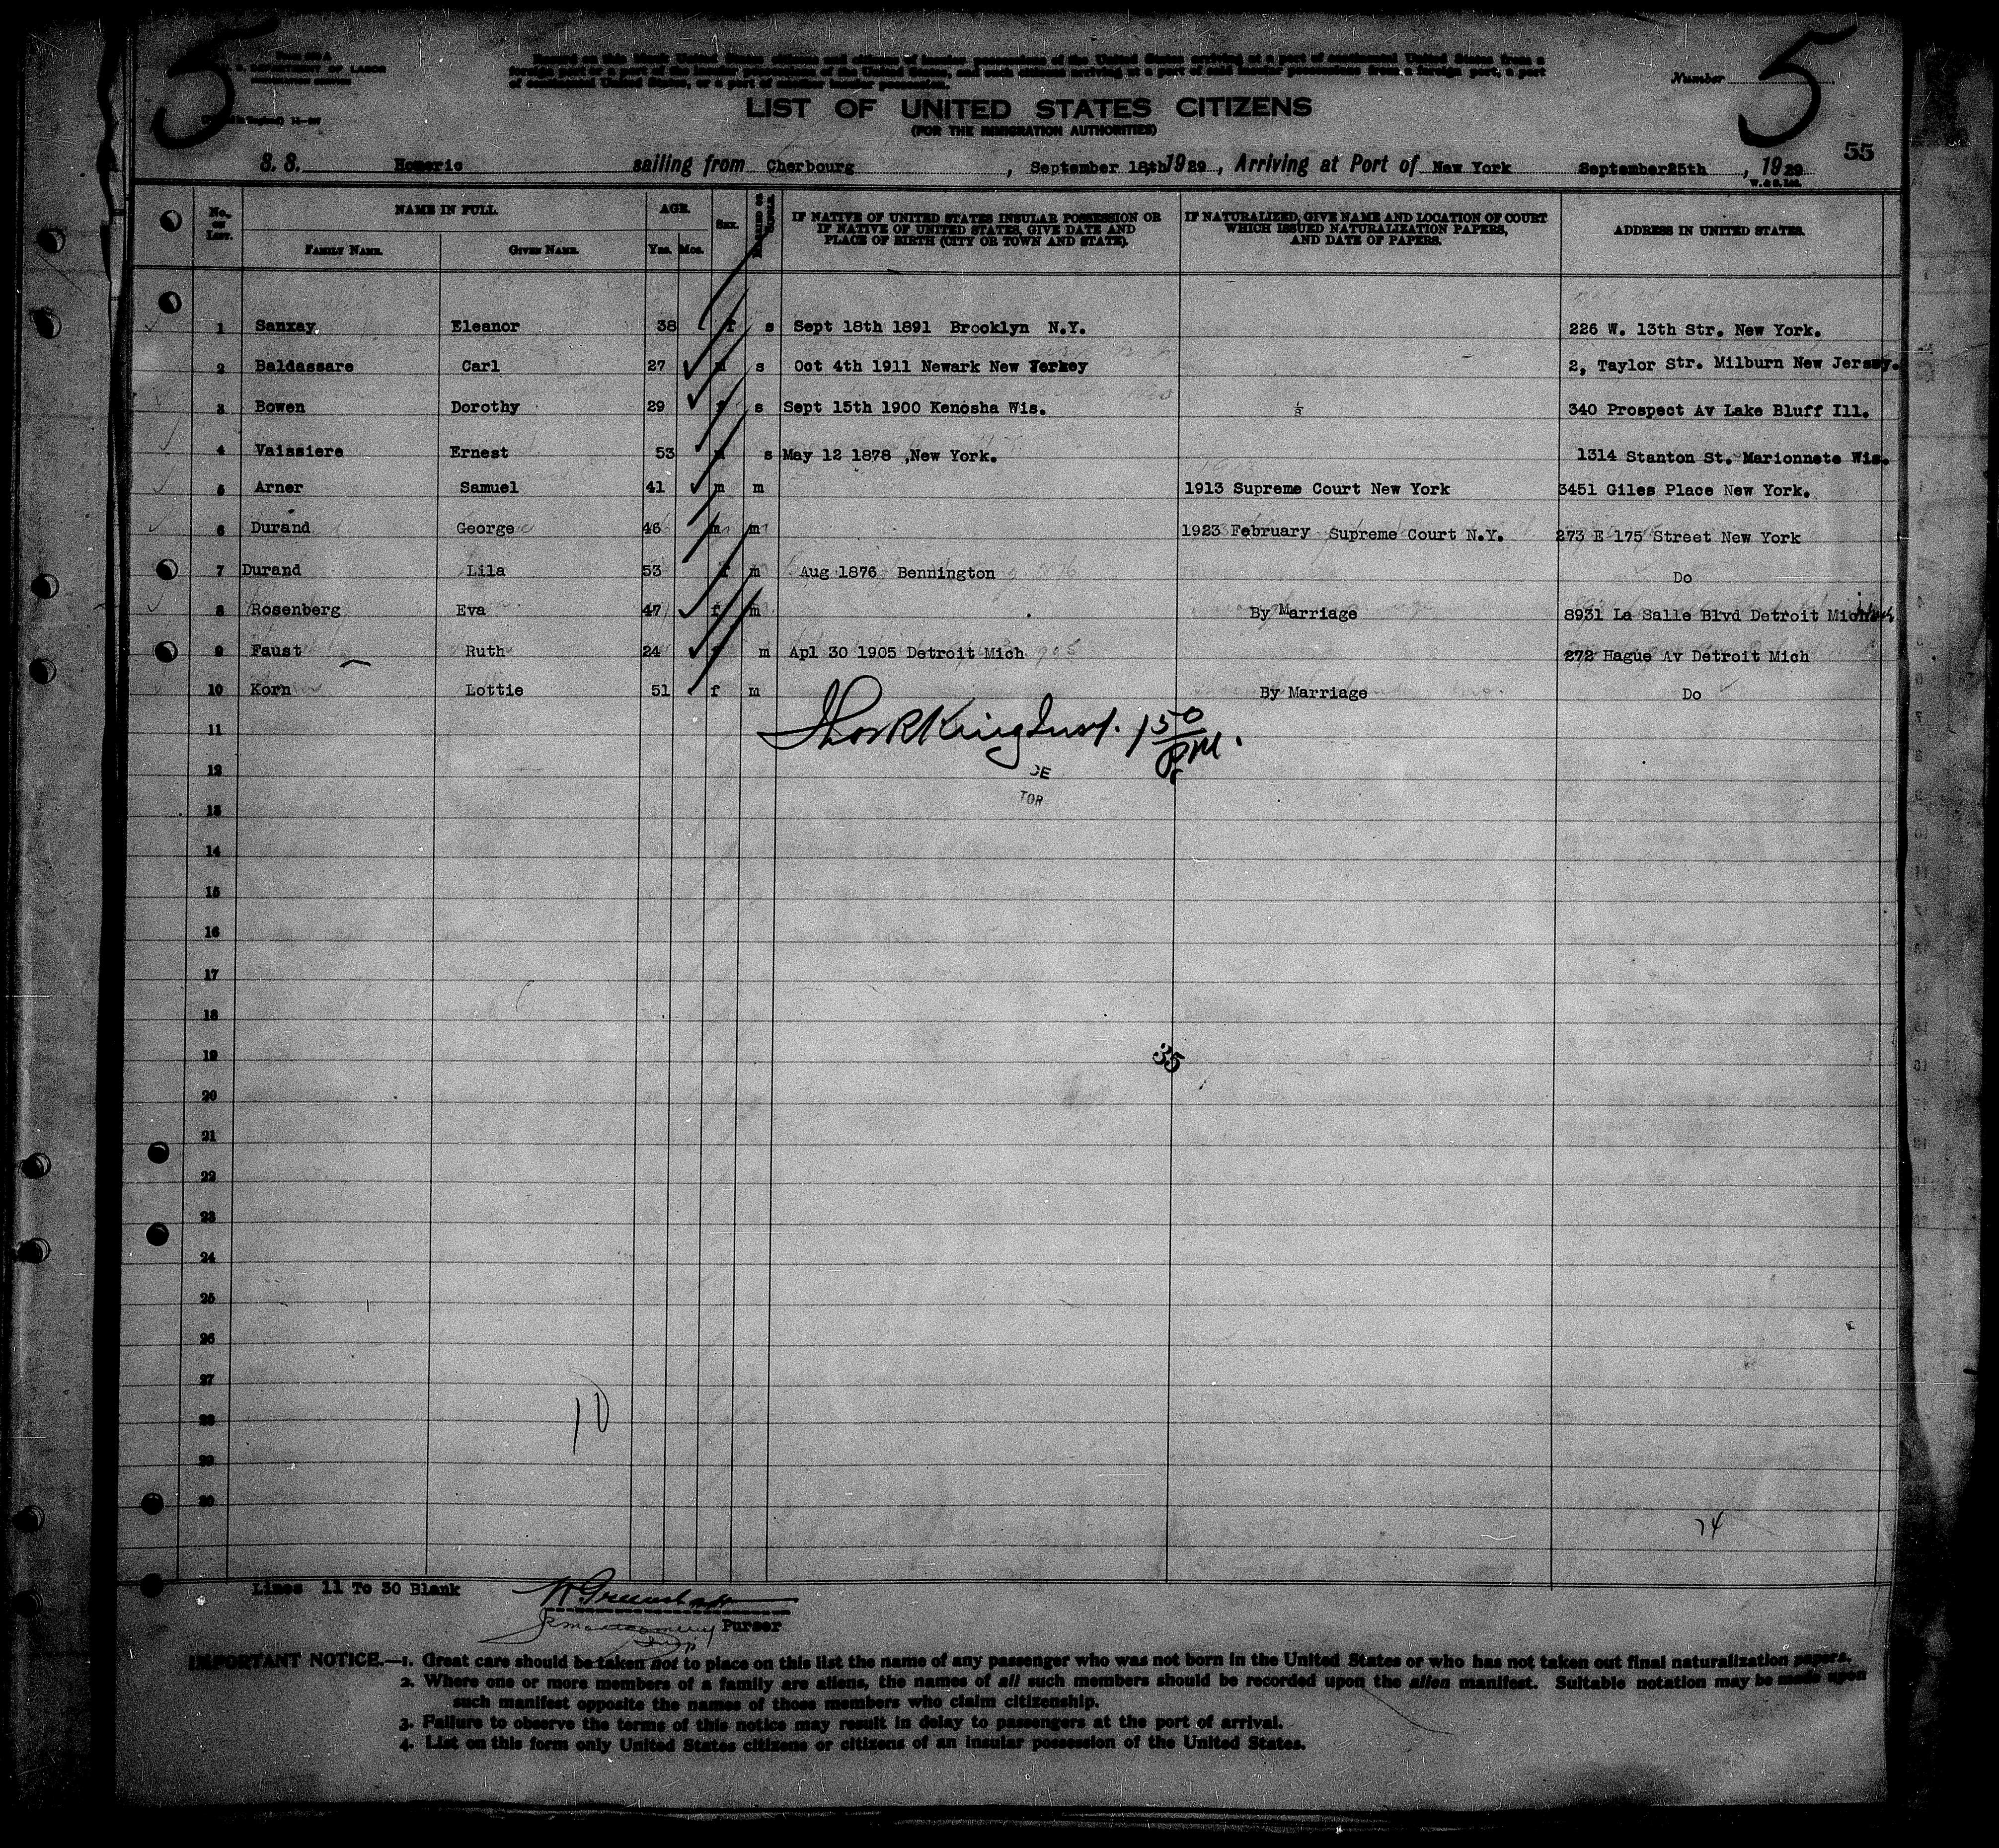 5
5
OF LABOR
Number
LIST OF UNITED STATES CITIZENS
(FOR THE IMMIGRATION AUTHORITIES)
S. S. Homeric sailing from Cherbourg, September 18th 1929, Arriving at Port of New York September 25th, 1929
55
No. ON LIST.
NAME IN FULL.
AGE.
SEX.
IF NATIVE OF UNITED STATES INSULAR POSSESSION OR IF NATIVE OF UNITED STATES, GIVE DATE AND PLACE OF BIRTH (CITY OR TOWN AND STATE).
IF NATURALIZED, GIVE NAME AND LOCATION OF COURT WHICH ISSUED NATURALIZATION PAPERS, AND DATE OF PAPERS.
ADDRESS IN UNITED STATES.
FAMILY NAME. GIVEN NAME. YRS. MOS.
1 Sanxay Eleanor 38 f s Sept 18th 1891 Brooklyn N.Y. 226 W. 13th Str. New York.
2 Baldassare Carl 27 s Oct 4th 1911 Newark New 2, Taylor Str. Milburn New Jersey.
3 Bowen Dorothy 29 f s Sept 15th 1900 Kenosha Wis. 340 Prospect Av Lake Bluff Ill.
4 Vaissiere Ernest 53 s May 12 1878 ,New York. 1314 Stanton St. Marionnete Wis.
5 Arner Samuel 41 m m 1913 Supreme Court New York 3451 Giles Place New York.
6 Durand George 46 m m 1923 February Supreme Court N.Y. 273 E 175 Street New York
7 Durand Lila 53 f m Aug 1876 Bennington Do
8 Rosenberg Eva 47 f m By Marriage 8931 La Salle Blvd Detroit
9 Faust Ruth 24 f m Apl 30 1905 Detroit Mich 272 Hague Av Detroit Mich
10 Korn Lottie 51 f m By Marriage Do
11
12
13
14
15
16
17
18
19
20
21
22
23
24
25
26
27
28
29
30
35
10
74
Lines 11 To 30 Blank
Purser
IMPORTANT NOTICE.—1. Great care should be taken not to place on this list the name of any passenger who was not born in the United States or who has not taken out final naturalization papers.
2. Where one or more members of a family are aliens, the names of all such members should be recorded upon the alien manifest. Suitable notation may be made upon
such manifest opposite the names of those members who claim citizenship.
3. Failure to observe the terms of this notice may result in delay to passengers at the port of arrival.
4. List on this form only United States citizens or citizens of an insular possession of the United States.